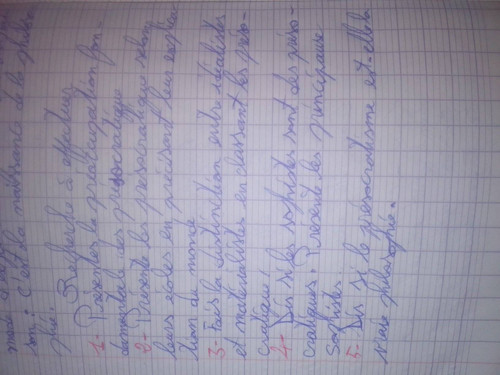 son : c'est la naissance de la philoso-
phie.
Recherche à effectuer
1- Présentez la préoccupation fon-
damentale des présocratiques
2- Présente les présocratique selon
leurs écoles en précisant leur explica-
tion du monde
3- Fais la distinction entre idéalistes
et matérialistes en classant les préso-
cratique.
4- Dis si les sophistes sont des préso-
cratiques. Présente les principaux
sophistes.
5- Dis si le présocratisme est-elle la
vraie philosophie.